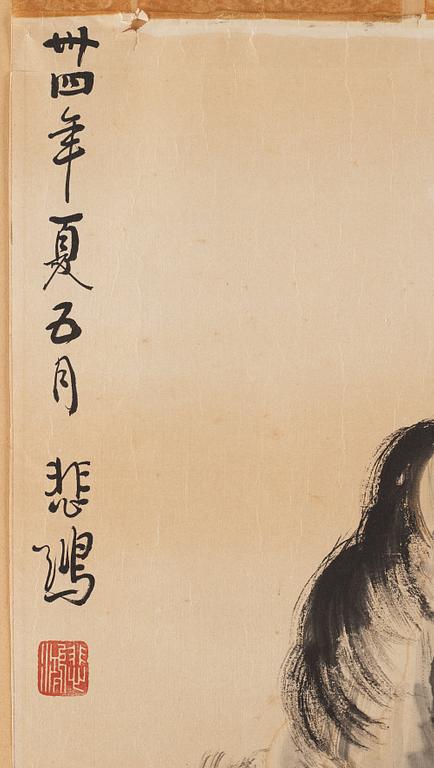 卅四年夏五月 悲鴻